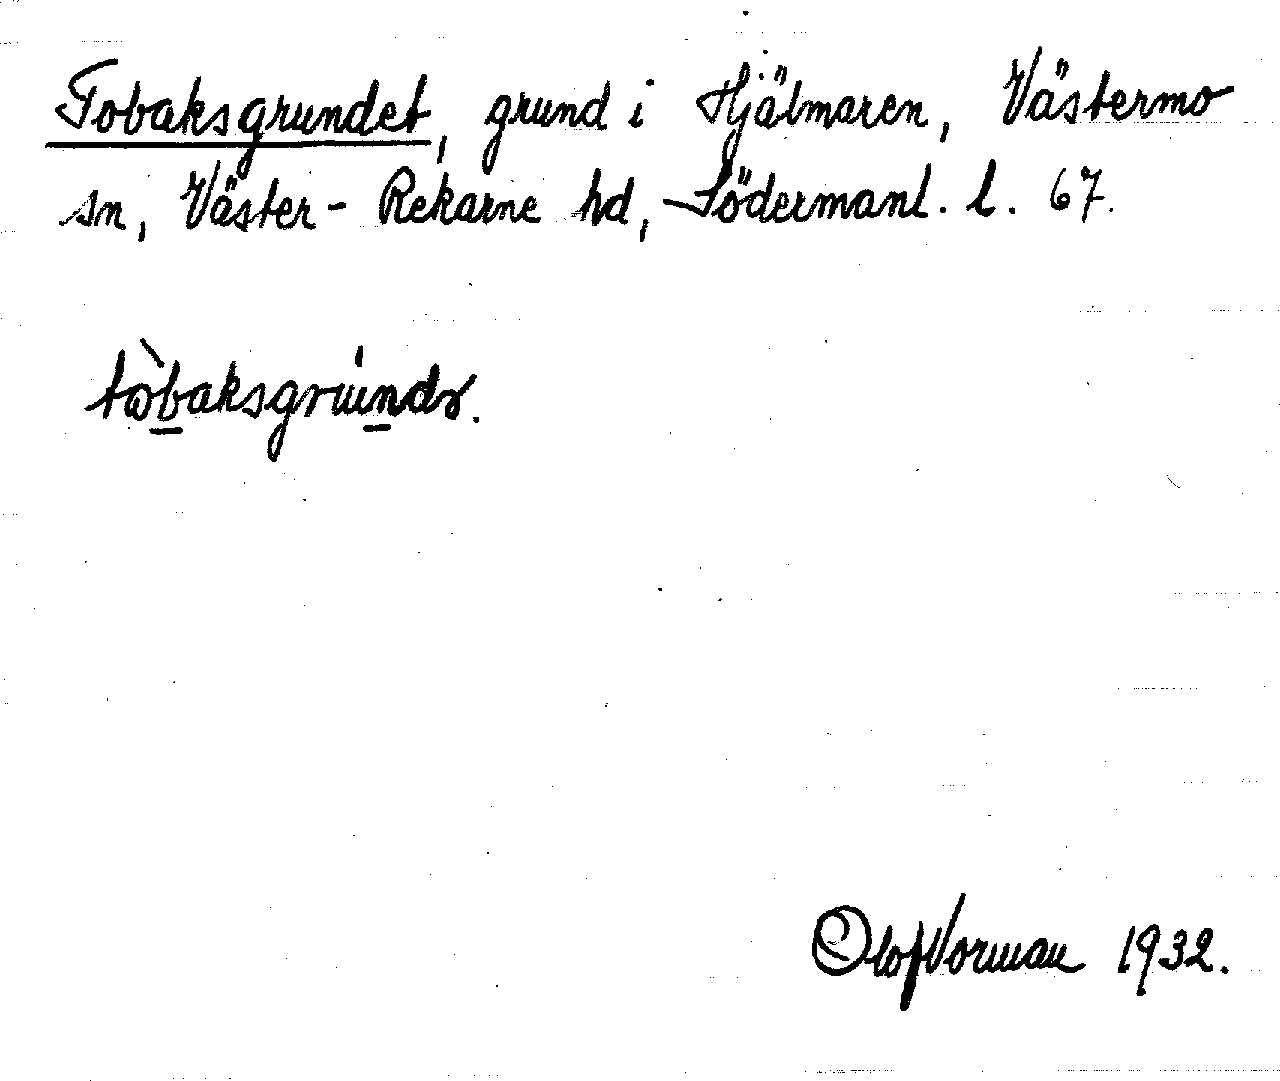 Tobaksgrundet, grund i Hjälmaren, Västermo
sn, Väster-Rekarne hd, Södermanl. l. 67.
tòbaksgrúndə.
Olof Norman 1932.